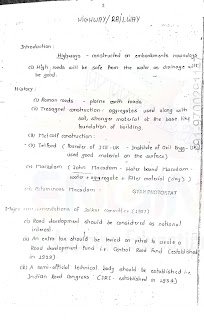 HIGHWAY/RAILWAY
Introduction:
Highways - constructed on embankments nowadays
(a) High roads will be safe from the water as drainage will
be good.
History:
(a) Roman roads - plane earth roads
(b) Tresagnol construction - aggregates used along with
soil stronger material at the base like
foundation of building.
(c) Metcalf construction:
(d) Telford ( founder of ICE-UK - Institute of Civil Engg-UK
used good material on the surface)
(e) Macadam ( John Macadam - Water bound Macadam
water + aggregate + filler material (
(f) Bituminous Macadam
STAR PHOTOSTAT
recommendations of Jaikar Committee (1927)
(a) Road development should be considered as national
interest.
(b) An extra tax should be levied on petrol to create a
Road development fund i.e. Central Road Fund (established
in 1929)
(c) A semi-official technical body should be established i.e.
Indian Road Congress (IRC - established in 1934)